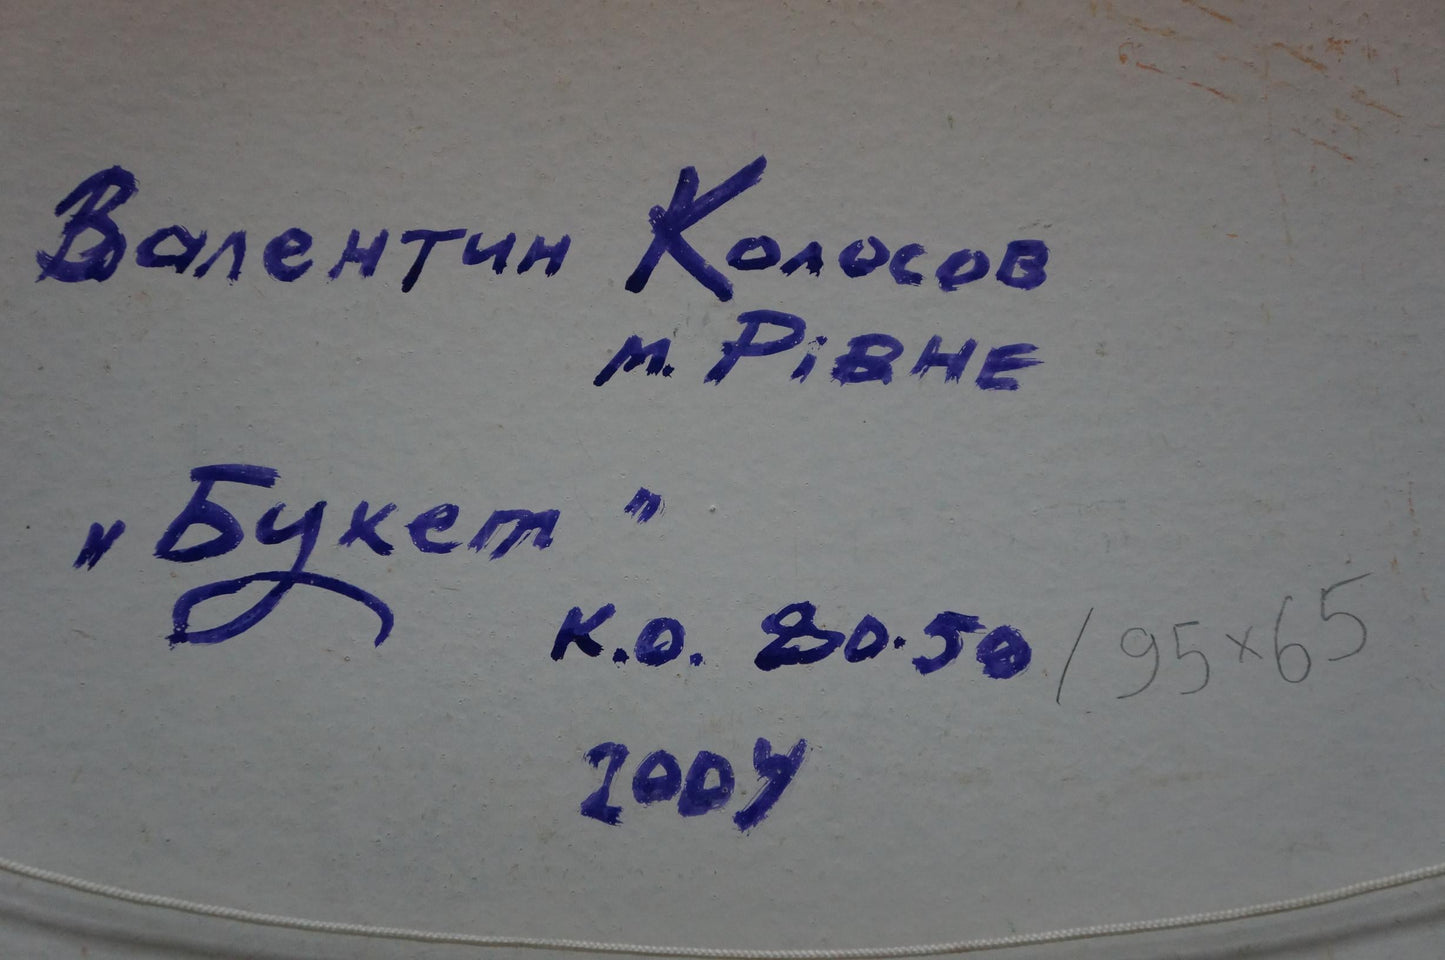 Валентин Колосов
м. Рівне
„Букет"
к.о. 80.50 / 95×65
2004